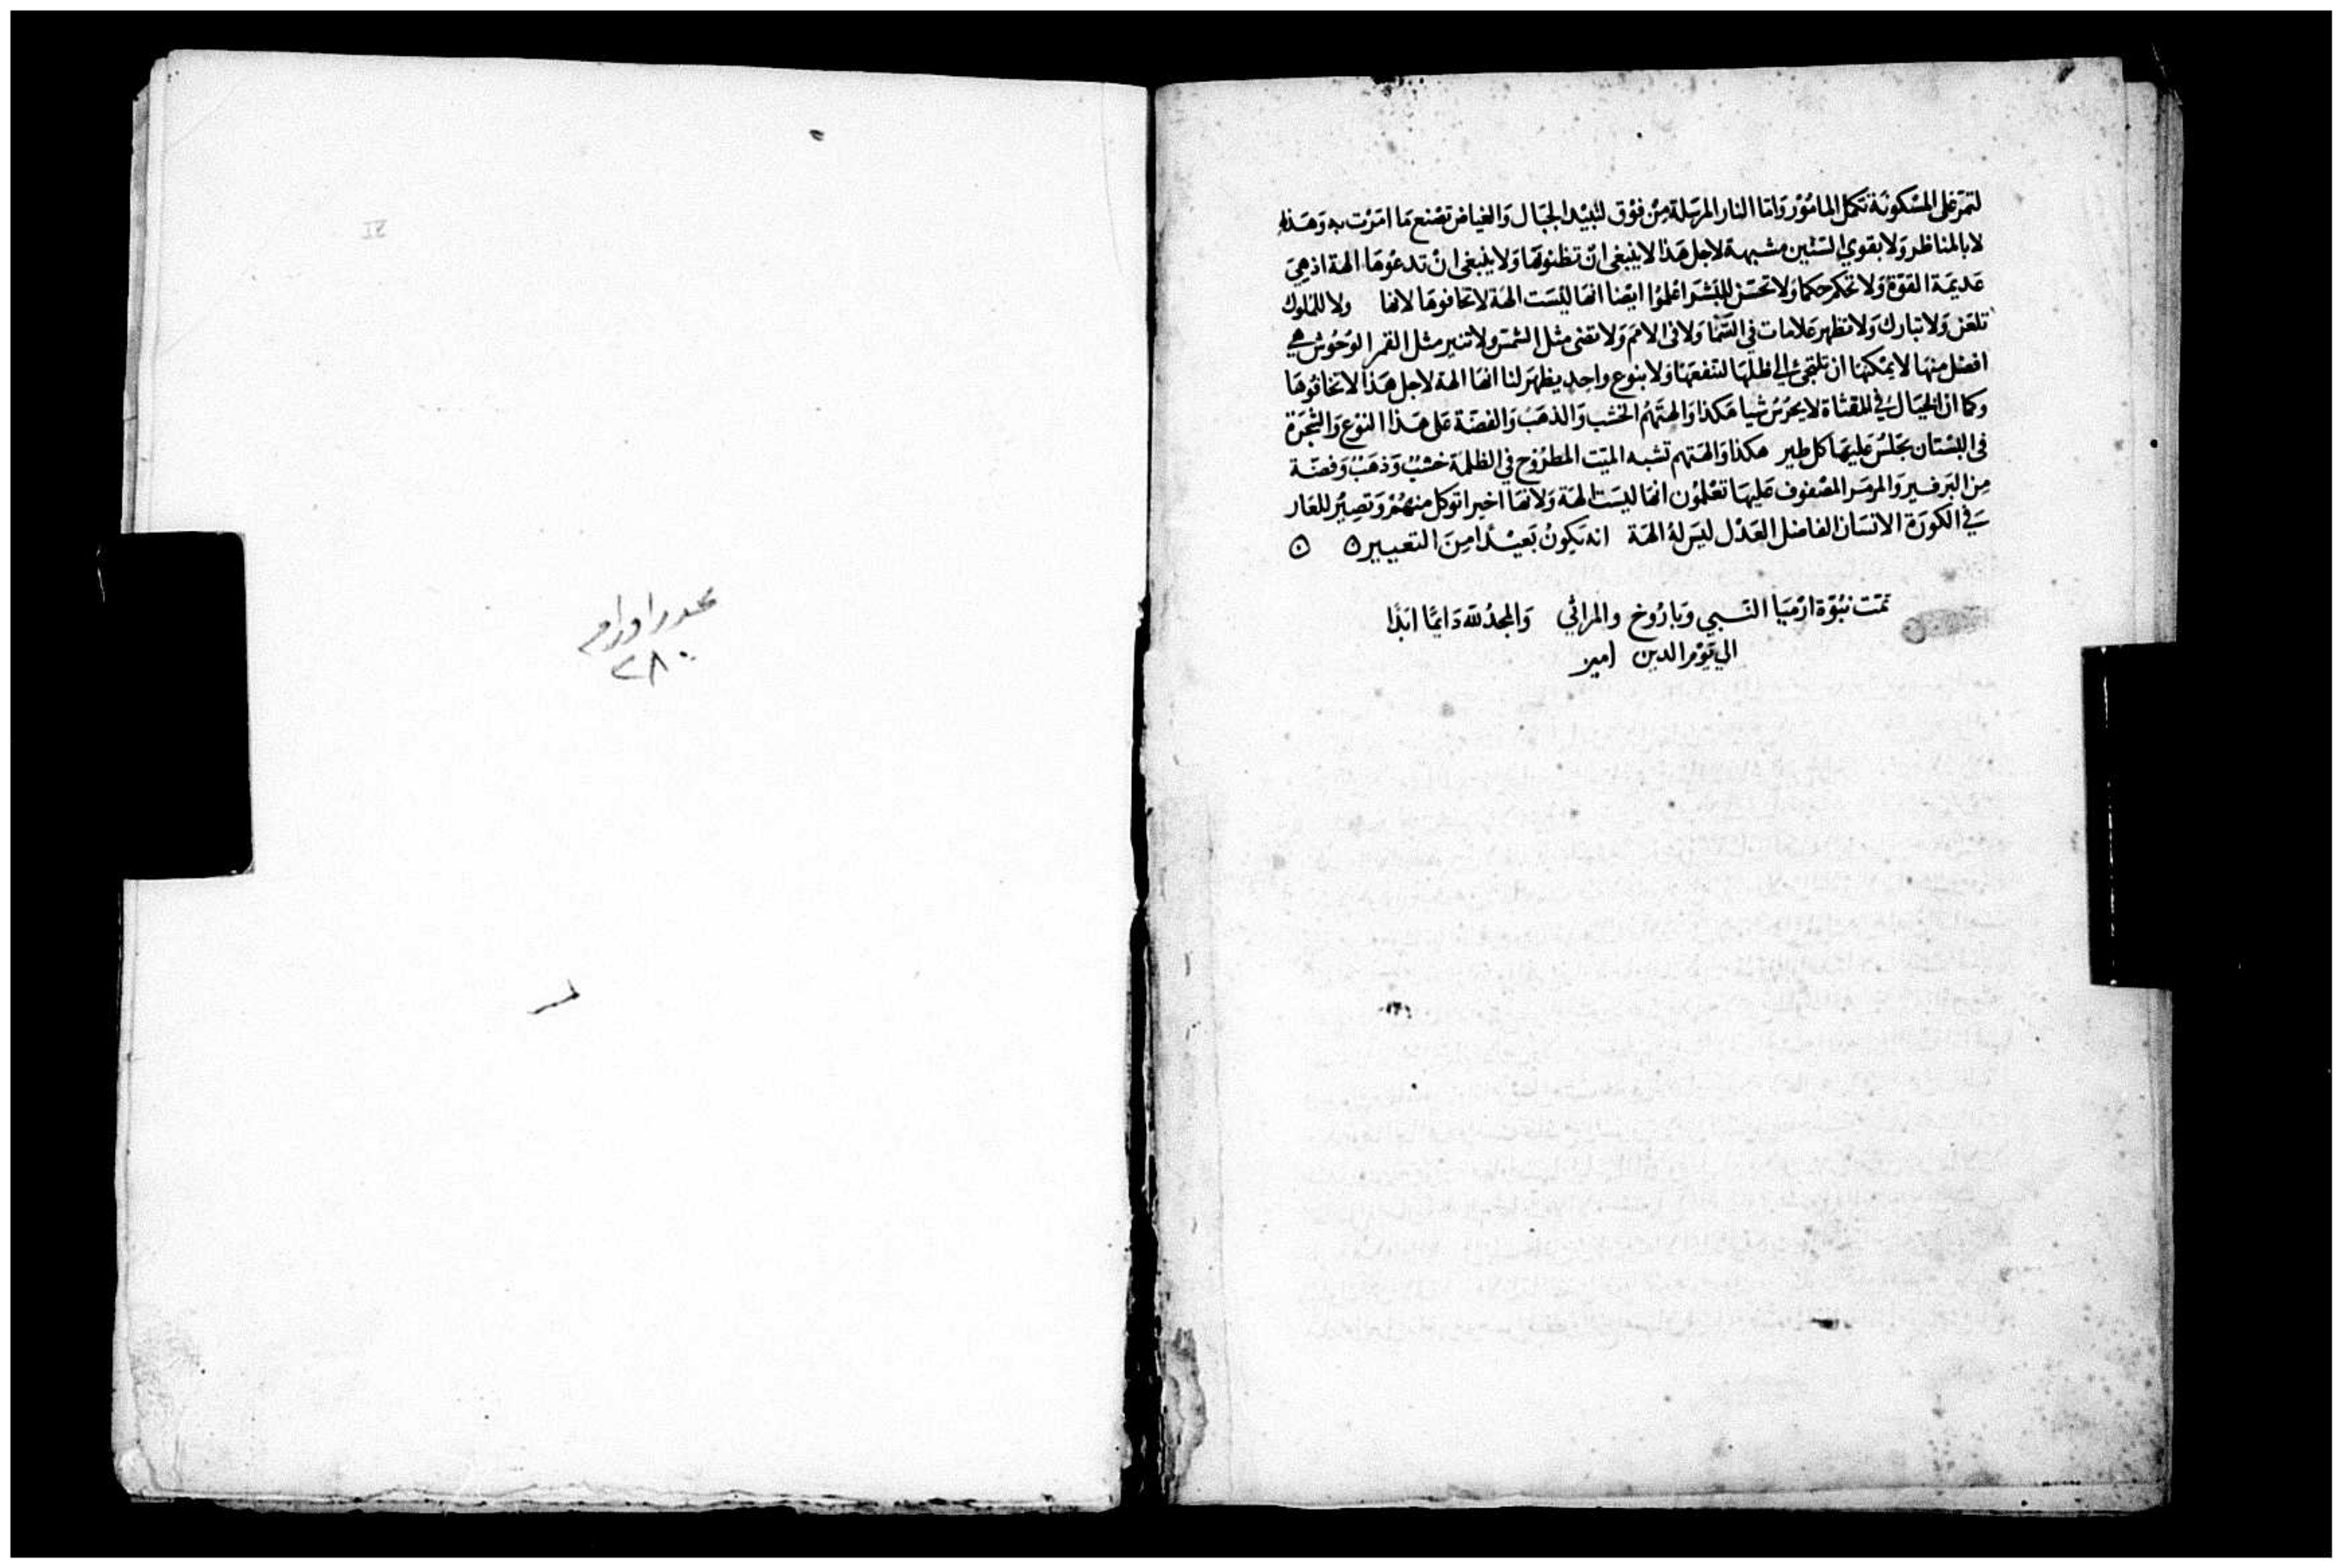 لتمر على المسكونة تكمل المامور واما النار المرسلة من فوق لتبيد الجبال والغياض تصنع ما امرت به وهذه
لا بالمناظر ولا بقوي اشتين مشبهة لاجل هذا لا ينبغي ان تظنوها ولا ينبغي ان تدعوها الهة اذ هي
عديمة القوة ولا تحكم حكما ولا تحسن للبشر اعلموا ايضا انها ليست الهة لا تخافوها لانها ولا للملوك
تلعن ولا تبارك ولا تظهر علامات في السما ولا في الامم ولا تضى مثل الشمس ولا تنير مثل القمر الوحوش هي
افضل منها لا يمكنها ان تلتجى الي ظلها لتنفعها ولا بنوع واحد يظهر لنا انها الهة لاجل هذا لا تخافوها
وكما ان الخيال في المقثاة لا يحرس شيا هكذا والهتهم الخشب والذهب والفضة على هذا النوع والشجرة
في البستان يجلس عليها كل طير هكذا والهتهم تشبه الميت المطروح في الظلمة خشب وذهب وفضة
من البرفير والمرمر المصفوف عليها تعلمون انها ليست الهة ولانها اخيرا توكل منهم وتصير للعار
في الكورة الانسان الفاضل العدل ليس له الهة انه يكون بعيدا من التعيير ٥ ٥
تمت نبوة ارميا النبي وباروخ والمراثي والمجد لله دايما ابدا
الي يوم الدين امين
٢٨٠